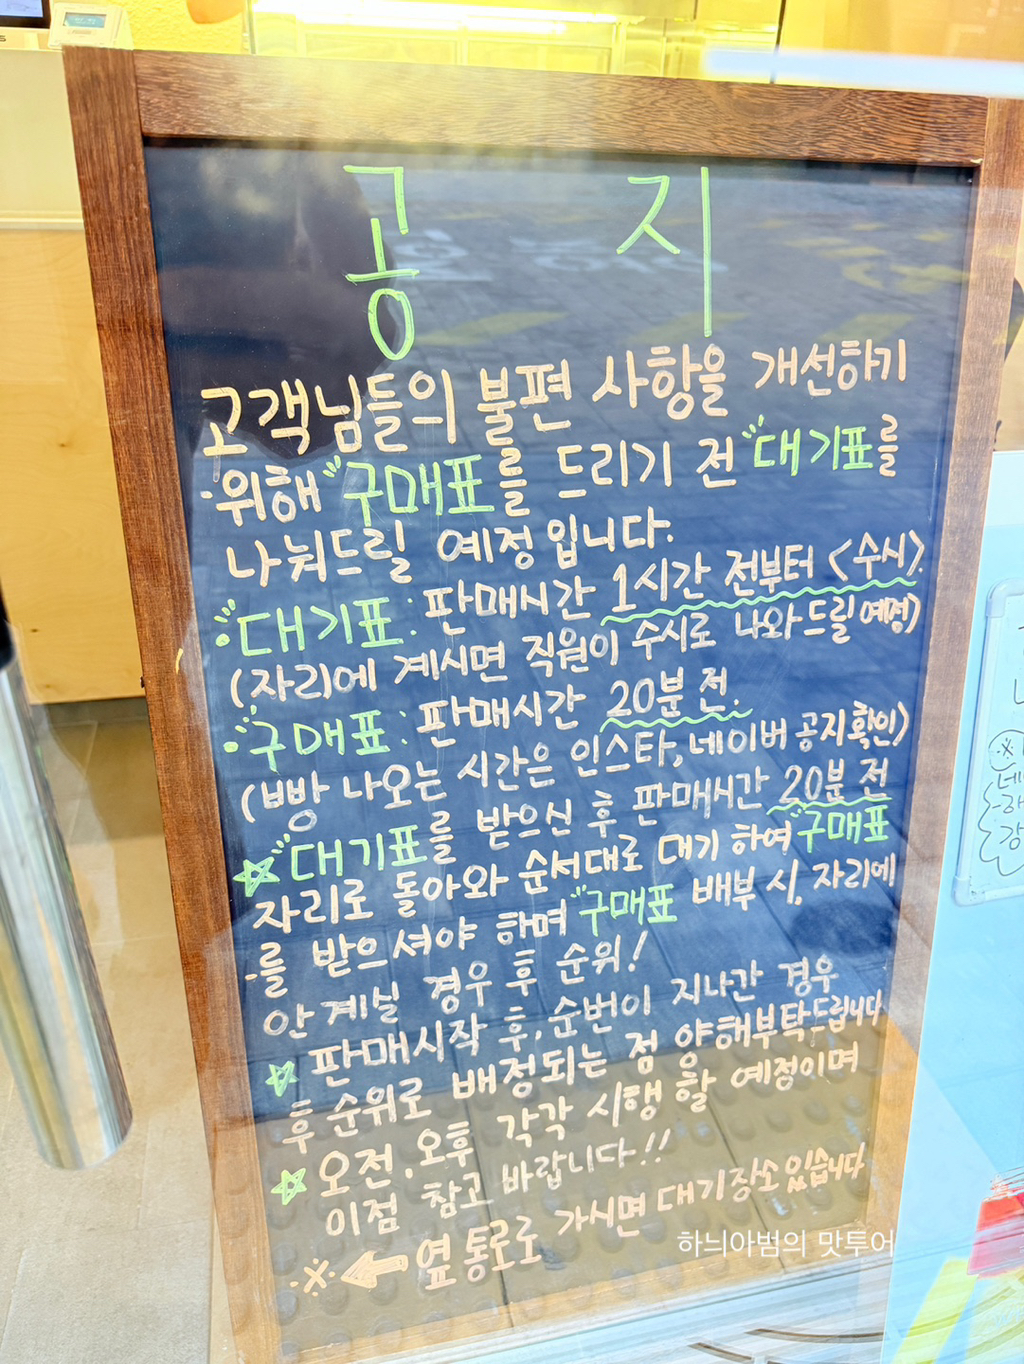 공지
고객님들의 불편 사항을 개선하기
위해 "구매표를 드리기 전 "대기표를
나눠드릴 예정입니다.
"대기표: 판매시간 1시간 전부터 <수시>.
(자리에 계시면 직원이 수시로 나와드릴예정)
"구매표: 판매시간 20분 전.
(빵 나오는 시간은 인스타, 네이버 공지확인)
☆ "대기표를 받으신 후 판매시간 20분 전
자리로 돌아와 순서대로 대기 하여 "구매표
를 받으셔야 하며 "구매표 배부 시, 자리에
안 계실 경우 후 순위!
☆ 판매시작 후, 순번이 지나간 경우
후 순위로 배정되는 점 양해부탁드립니다
☆ 오전, 오후 각각 시행 할 예정이며
이점 참고 바랍니다!!
※ ← 옆 통로로 가시면 대기장소있습니다
하늬아범의 맛투어